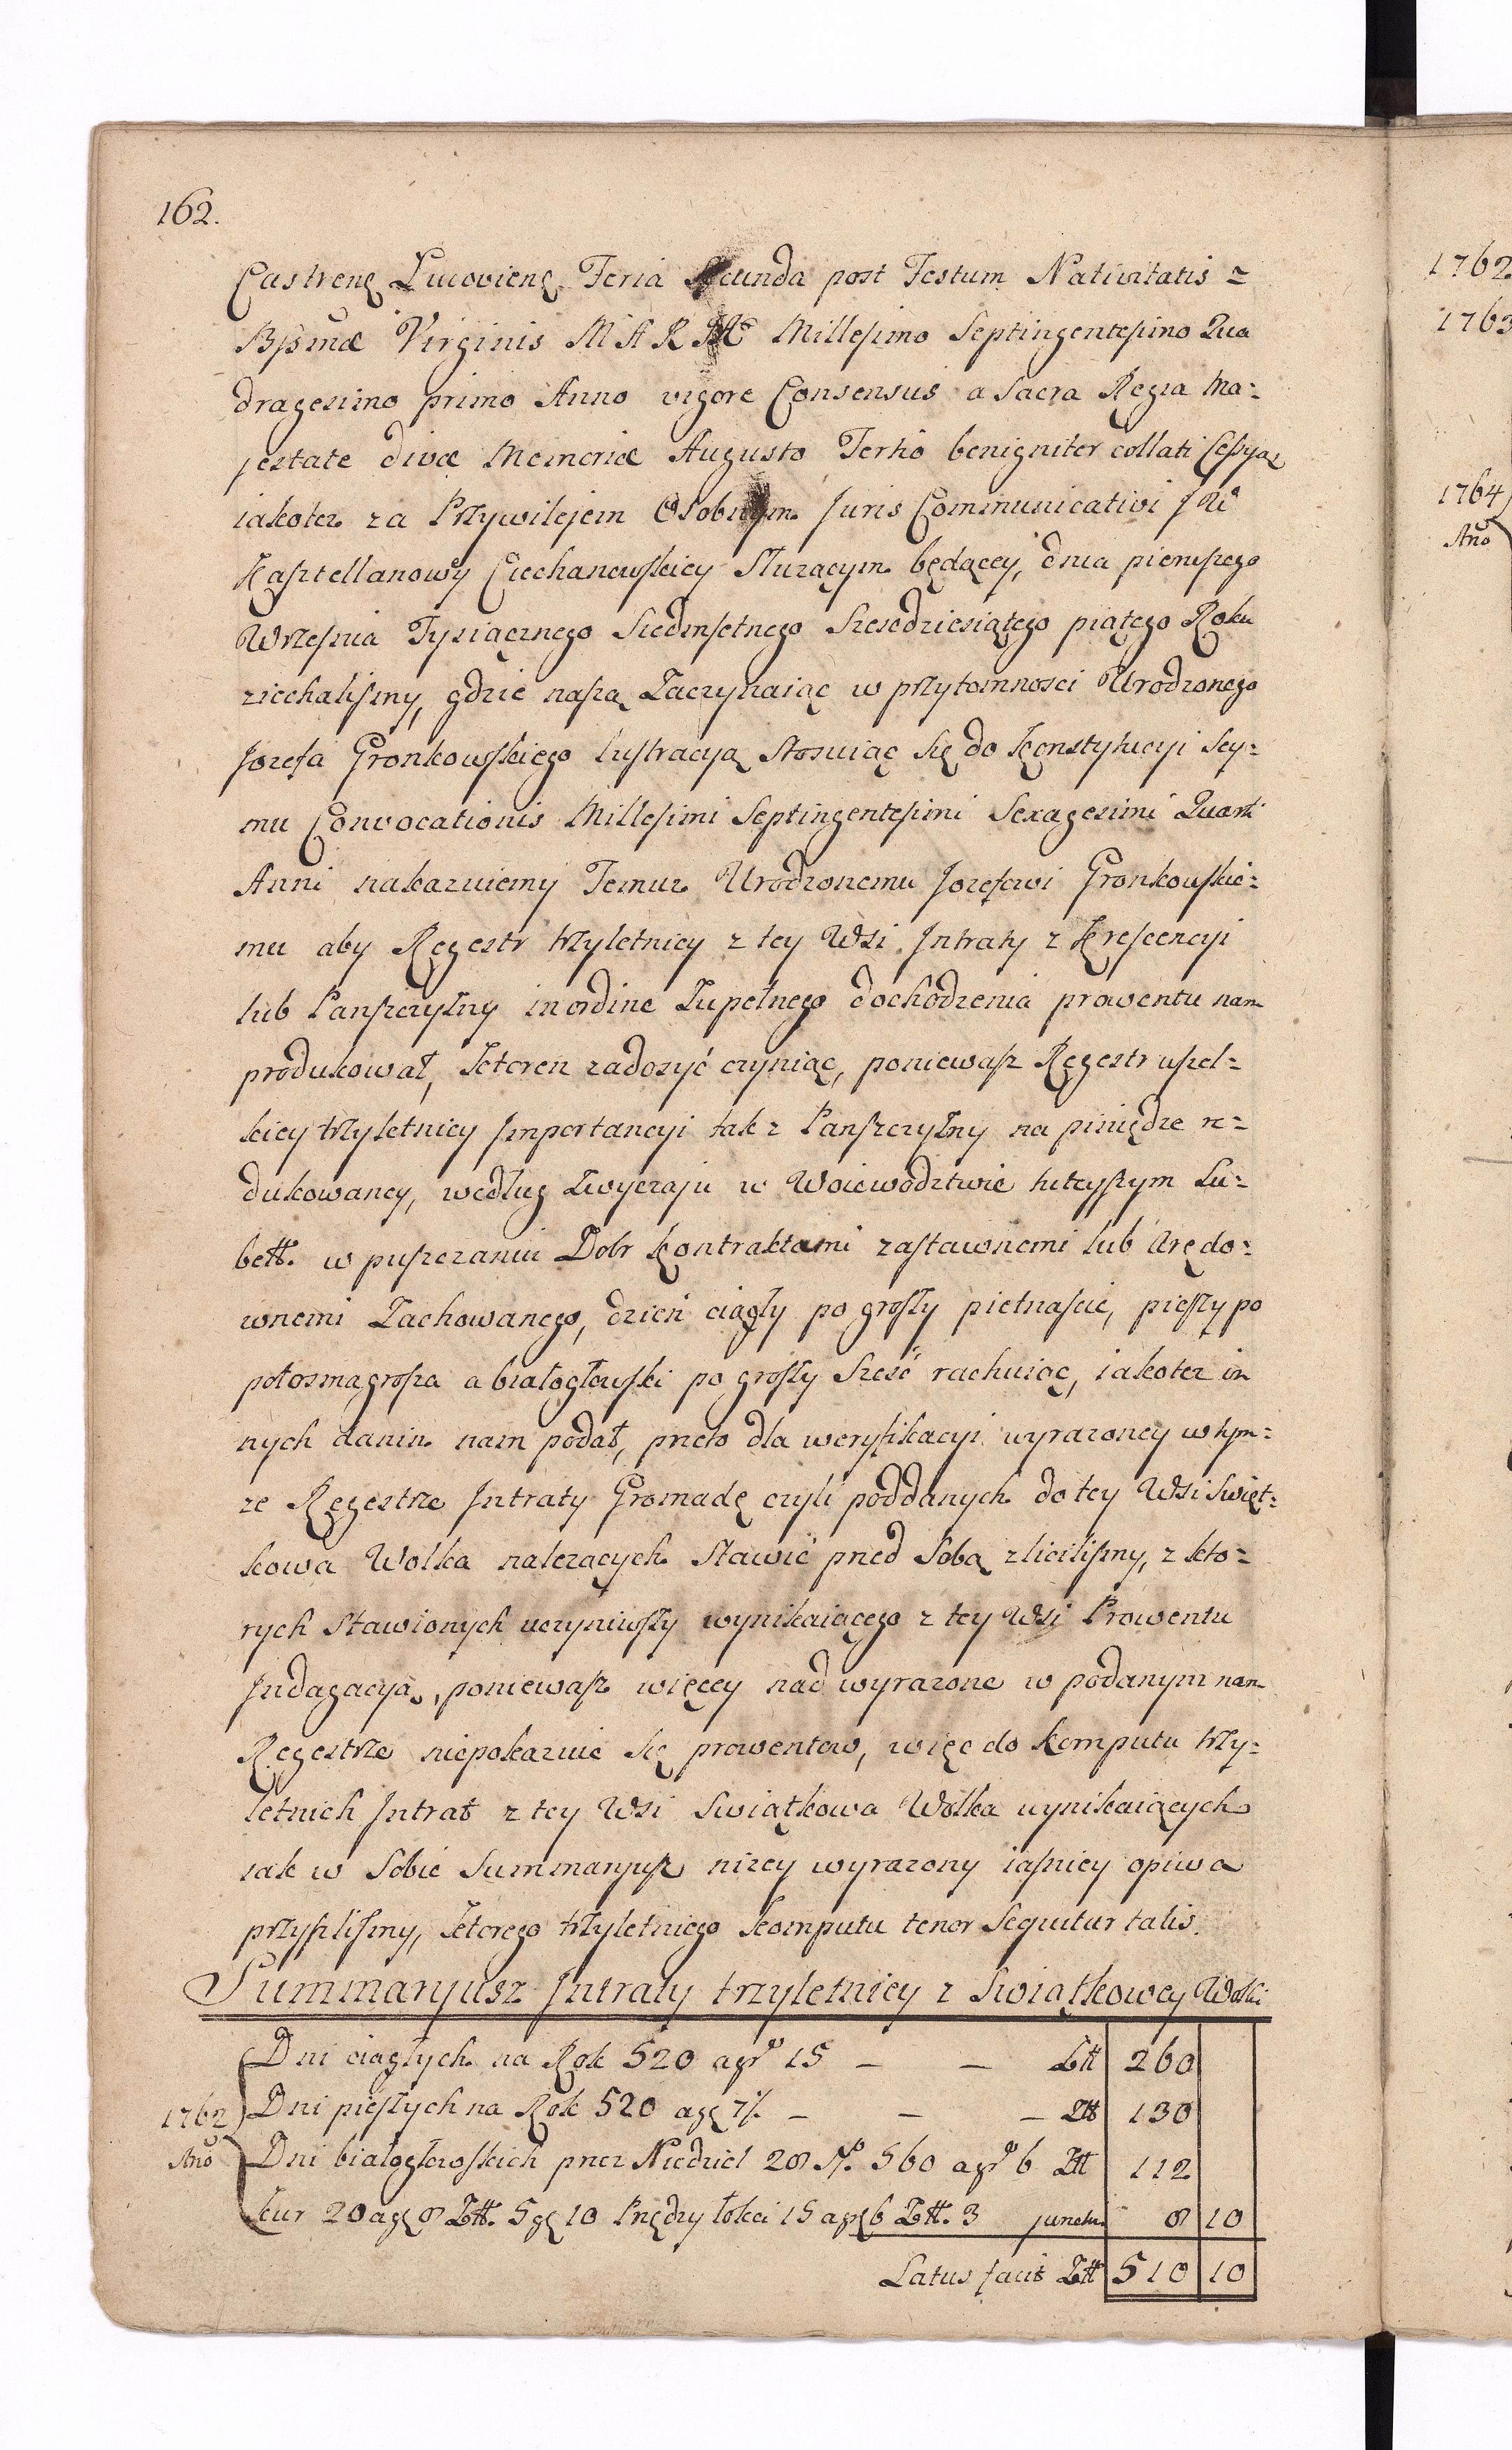 162.
Castrenę Lucovienę Feria Secunda post Festum Nativitatis =
Bßmæ Virginis MARIÆ Millesimo Septingentesimo Qua
dragesimo primo Anno vigore Consensus a Sacra Regia Ma=
jestate divæ Memoriæ Augusto Tertio benigniter collati Cessyą
iakotez za Przywilejem Osobnym Juris Communicativi JW
Kasztellanowy Ciechanowskiey Służącym będącey, dnia pierwszego
Września Tysiącznego Siedmsetnego Szescdziesiątego piątego Roku
ziechalismy, gdzie naszą Zaczynaiąc w przytomnosci Urodzonego
Jozefa Gronkowskiego lustracyą Stosuiąc się do Konstytucyi Sey=
mu Convocationis Millesimi Septingentesimi Sexagesimi Quarti
Anni nakazuiemy Temuz Urodzonemu Jozefowi Gronkowskie=
mu aby Regestr trzyletniey z tey Wsi Intraty z Krescencyi
lub Panszczyzny in ordine Zupełnego dochodzenia prowentu nam
produkował, Ktoren zadosyć czyniąc, poniewasz Regestr wszel=
kiey trzyletniey Importancyi tak z Panszczyzny na piniędze re=
dukowaney, według Zwyczaju w Woiewodztwie tuteyszym Lu=
bełł. w puszczaniu Dobr kontraktami zastawnemi lub Arędo=
wnemi Zachowanego, dzień ciągły po groszy pietnascie, pieszy po
połosmagrosza a białogłowski po groszy Sześć rachuiąc, iakotez in
nych danin nam podał, przeto dla weryfikacyi wyrazoney w tym=
ze Regestrze Intraty Gromadę czyli poddanych do tey Wsi Swięt=
kowa Wolka nalezących Stawić przed Sobą zliciliszmy, z kto=
rych Stawionych uczyniwszy wynikaiącego z tey Wsi Prowentu
Indagacyą, poniewasz więcey nad wyrazone w podanym nam
Regestrze niepokazuie się prowentow, więc do Komputu trzy=
letnich Intrat z tey Wsi Swiątkowa Wolka wynikaiących
iak w Sobie Summaryusz nizey wyrazony iasniey opiwa
przyszlismy, ktorego trzyletniego komputu tenor Sequitur talis.
Summaryusz Intraty trzyletniey z Swiątkowey Wolki
Dni ciągłych na Rok 520 a gr 15 – – Złł 260
1762 Dni pieszych na Rok 520 a gr 7½ – – – Złł 130
Ano Dni białogłowskich przez Niedziel 28 No 560 a gr 6 Złł 112
Kur 20 a gr 8 Złł. 5 gr 10 Przędzy łokci 15 a gr 6 Złł. 3 junctim 8 10
Latus facit Złł 510 10
1762
1763
1764
Ano